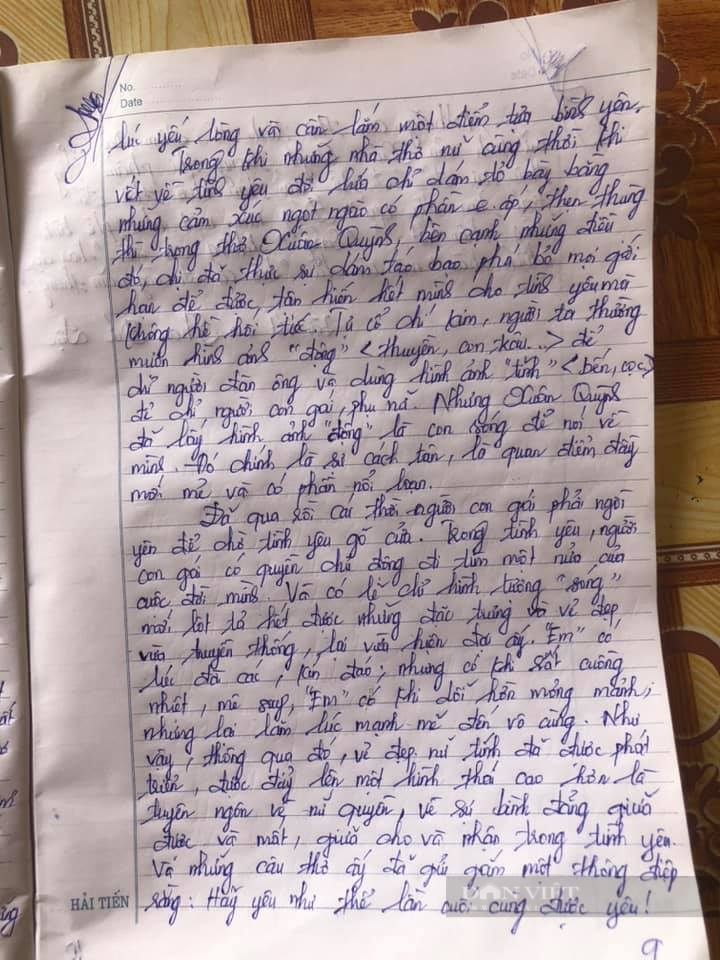 No.
Date
lúc yếu lòng và cần lắm một điểm tựa bình yên.
Trong khi những nhà thơ nữ cùng thời khi
viết về tình yêu đôi lứa chỉ dám tỏ bày bằng
những cảm xúc ngọt ngào có phần e ấp, thẹn thùng
thì trong thơ Xuân Quỳnh, bên cạnh những điều
đó, chị đã thực sự dám táo bạo phá bỏ mọi giới
hạn để được tận hiến hết mình cho tình yêu mà
không hề hối tiếc. Từ cổ chí kim, người ta thường
mượn hình ảnh "động" <thuyền, con tàu...> để
chỉ người đàn ông và dùng hình ảnh "tĩnh" <bến, cọc>
để chỉ người con gái, phụ nữ. Nhưng Xuân Quỳnh
đã lấy hình ảnh "động" là con sóng để nói về
mình. Đó chính là sự cách tân, là quan điểm đầy
mới mẻ và có phần nổi loạn.
Đã qua rồi cái thời người con gái phải ngồi
yên để chờ tình yêu gõ cửa. Trong tình yêu, người
con gái có quyền chủ động đi tìm một nửa của
cuộc đời mình. Và có lẽ chỉ hình tượng "sóng"
mới lột tả hết được những đặc trưng vẻ đẹp
vừa truyền thống, lại vừa hiện đại ấy. "Em" có
lúc đài các, kín đáo; nhưng có khi rất cuồng
nhiệt, mê say, "Em" có khi dỗi hờn mỏng mảnh;
nhưng lại lắm lúc mạnh mẽ đến vô cùng. Như
vậy, thông qua đó, vẻ đẹp nữ tính đã được phát
triển, được đẩy lên một hình thái cao hơn là
tuyên ngôn về nữ quyền, về sự bình đẳng giữa
được và mất, giữa cho và nhận trong tình yêu.
Và những câu thơ ấy đã gửi gắm một thông điệp
rằng: Hãy yêu như thể lần cuối cùng được yêu!
HẢI TIẾN
DÂN VIỆT
9